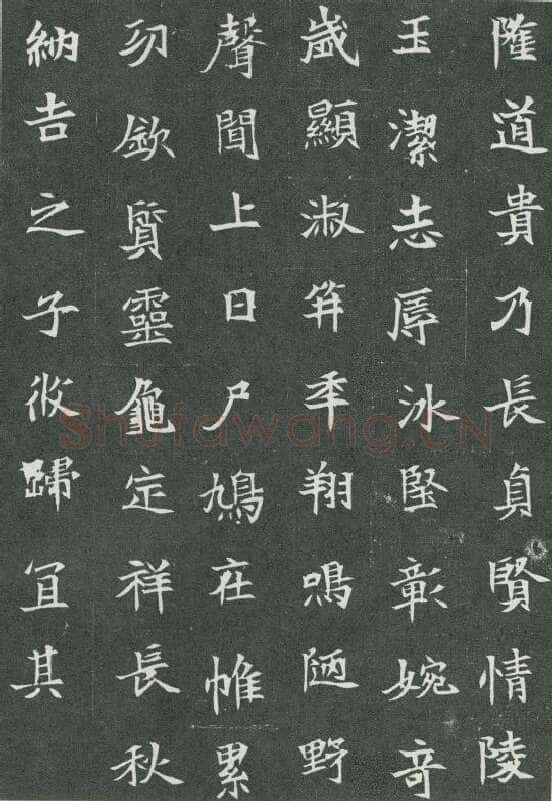 隆道貴乃長貞賢情陵
玉潔志厚冰堅彰婉奇
歲顯淑笄年翔鳴陋野
聲聞上日尸鳩在帷累
功欽質靈龜定祥長秋
納吉之子攸歸宜其
Shufawang.CN